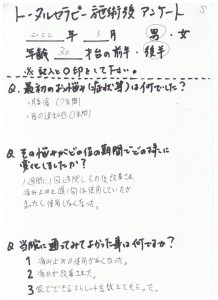 トータルセラピー施術後アンケート
2022年 5月 男・女
年齢 30 才台の前半・後半
※記入と○印をして下さい。
Q. 最初のお悩み(症状等)は何でしたか?
・(7年間)
・首の(1年間)
Q. その悩みがどの位の期間でどの様に
変化しましたか?
1週間に1回通院してその後改善
痛み止めも週1回は使用していたが
まったく使用しなくなった。
Q. 当院に通ってみてよかった事は何ですか?
1 痛み止めの使用がなくなった。
2 痛みが改善された。
3 家でできるストレッチを教えてもらった。